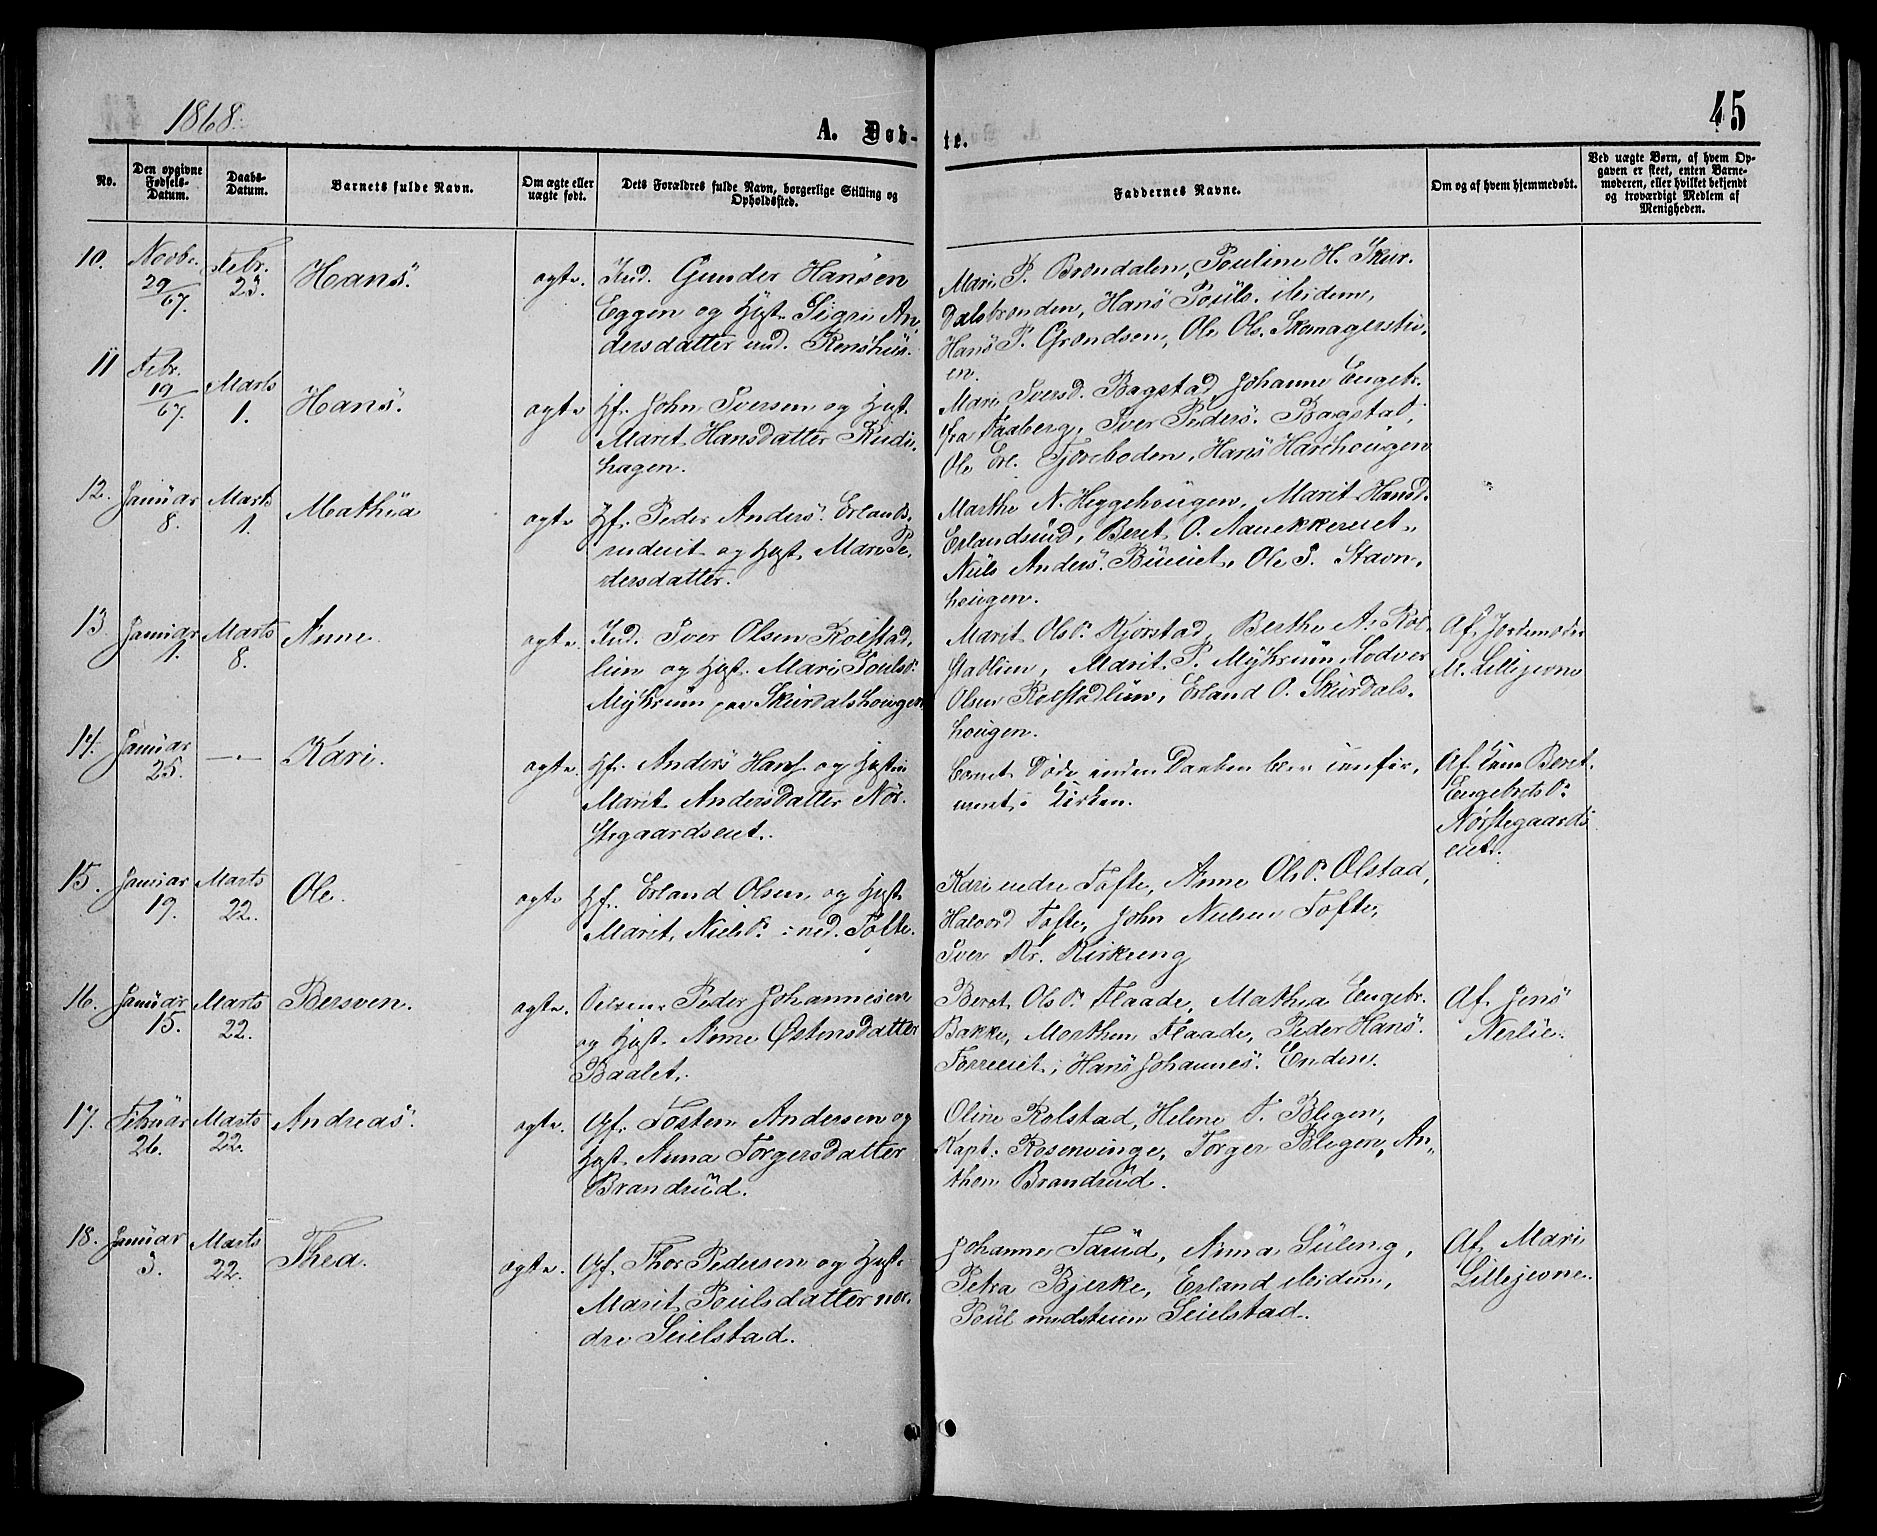 1868.
45
A. Døb-
te.
No.
Den opgivne Fødsels-Datum.
Daabs-Datum.
Barnets fulde Navn.
Om ægte eller uægte født.
Dets Forældres fulde Navn, borgerlige Stilling og Opholdssted.
Faddernes Navne.
Om og af hvem hjemmedøbt.
Ved uægte Børn, af hvem Op-
gaven er skeet, enten Barne-
moderen, eller hvilket bekjendt
og troværdigt Medlem af
Menigheden.
10. Novbr. 29/67. Febr. 23. Hans. ægte. Ind. Gunder Hansen
Eggen og Hust. Sigri An-
dersdatter ind.
Mari P. Brændalen, Pouline H. Skur-
dalsbrenden, Hans Pouls. Meidem,
Hans P. Grøndsen, Ole Ols.
en.
11 Febr. 19/67. Marts 1. Hans. ægte Hf. John Iversen og Hust.
Marit Hansdatter
hagen.
Mari Iversd. Bagstad, Johanne Engebr.
fra Faaberg, Iver Peders. Bagstad,
Ole Erl. Hans
12. Januar 8. Marts 1. Mathea ægte Hf. Peder Anders. Erlands-
rudeiet og Hust. Mari Pe-
dersdatter.
Marthe N. Heggehougen, Marit Hansd.
Erlandsrud, Beret O.
Niels Anders. Ole P. Stavn-
hougen.
13. Januar 1. Marts 8. Anne ægte Ind. Iver Olsen Rolstad-
lien og Hust. Mari Poulsd.
Mykrum paa Skurdalshougen
Marit Olsd. Kjorstad, Berthe A. Rol-
stadlien, Marit P. Mykrum, Lodver
Olsen Rolstadlien, Erland O. Skurdals-
hougen.
Af Jordemoder
M. Lillejevne
14. Januar 25. -"- Kari. ægte. Hf. Anders Hans. og Hustru
Marit Andersdatter Nør-
stegaardseiet.
Barnet døde inden Daaben blev
i Kirken.
Af Beret
Engebretsd.
Nørstegaards
eiet.
15. Januar 19. Marts 22. Ole. ægte Hf. Erland Olsen og Hust.
Marit Nielsd. ned. Tofte.
Kari nedre Tofte, Anne Olsd. Olstad,
Halvord Tofte, John Nielsen Tofte,
Iver Kr. Kirkeeng
16. Januar 15. Marts 22. Bersven. ægte. Peder Johannesen
og Hust. Anne Østensdatter
Baalet.
Beret Olsd. Flaade, Mathea Engebr.
Bakke, Morthen Flaade, Peder Hans.
Hans Johannes. Enden.
Af Jens
Nerlie.
17. Februar 26. Marts 22. Andreas. ægte. Gf. Tosten Andersen og
Hust. Anna Torgersdatter
Brandrud.
Oline Rolstad, Helene T. Blegen,
Kapt. Rosenvinge, Torger Blegen, An-
thon Brandrud.
18. Januar 3. Marts 22. Thea. ægte. Gf. Thor Pedersen og Hust.
Marit Poulsdatter nor-
dre Seielstad.
Johanne Taarud, Anna Suleng,
Petra Bjerke, Erland Meidem,
Poul Seielstad.
Af Mari
Lillejevne.